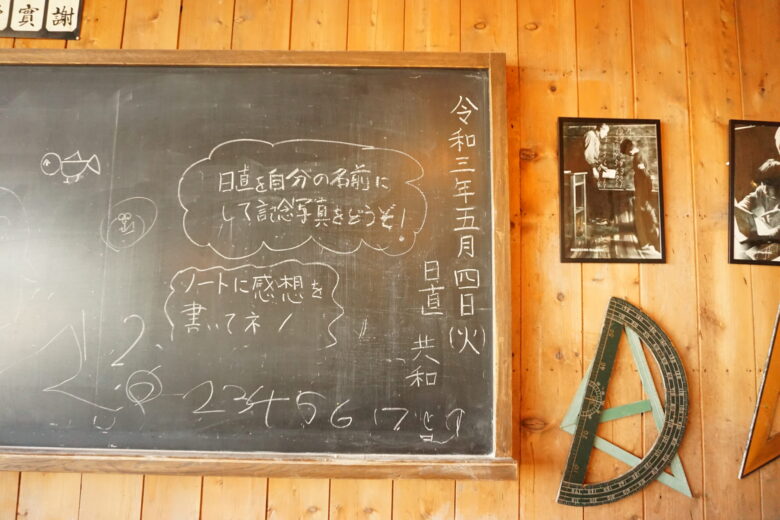 實謝
令和三年五月四日(火)
日直 共和
日直を自分の名前に
して記念写真をどうぞ!
ノートに感想を
書いてネ!
2
2 3 4 5 6 7